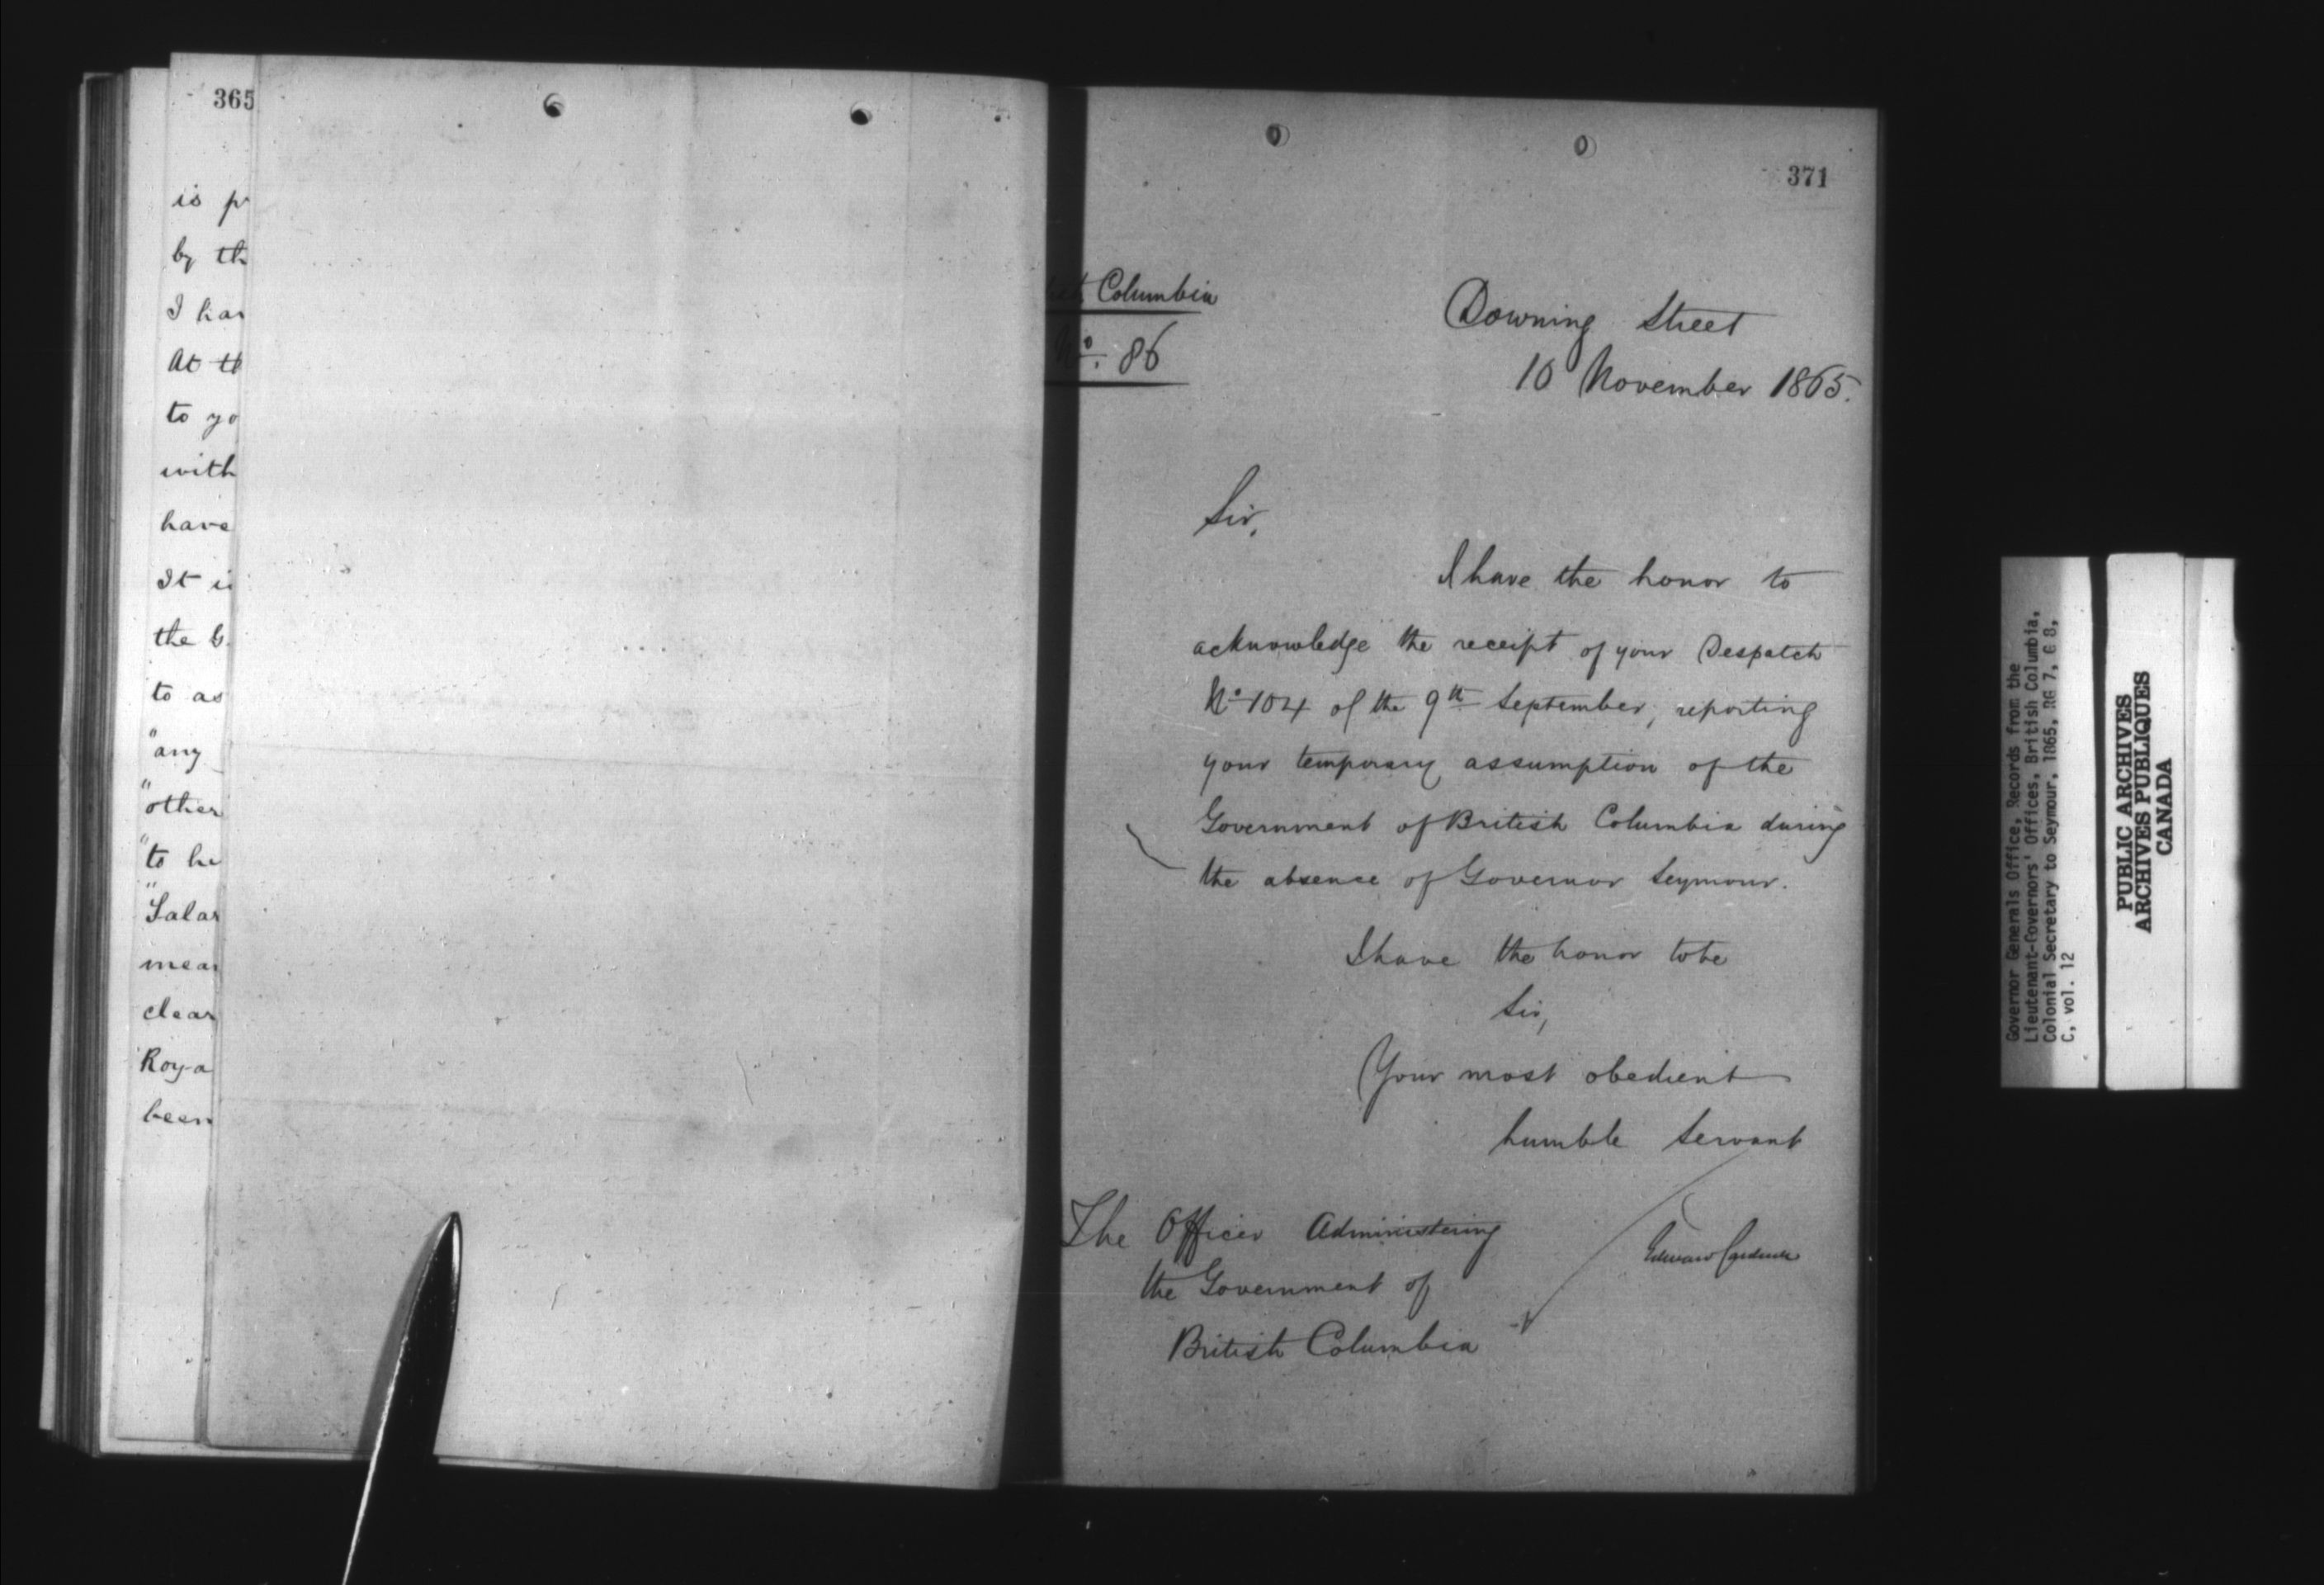 365
is p
by th
I hav
At th
to yo
with
have
It i
the G
to as
"any
"other
"to he
"Salar
mea
clear
Roya
been
371
Columbia
No. 86
Downing Street
10 November 1865.
Sir,
I have the honor to
acknowledge the receipt of your Despatch
No 104 of the 9th September, reporting
your temporary assumption of the
Government of British Columbia during
the absence of Governor Seymour.
I have the honor to be
Sir,
Your most obedient
humble servant
Edward Cardwell
The Officer Administering
the Government of
British Columbia
Governor Generals Office, Records from the
Lieutenant-Governors' Offices, British Columbia,
Colonial Secretary to Seymour, 1865, RG 7, G 8,
C, vol. 12
PUBLIC ARCHIVES
ARCHIVES PUBLIQUES
CANADA